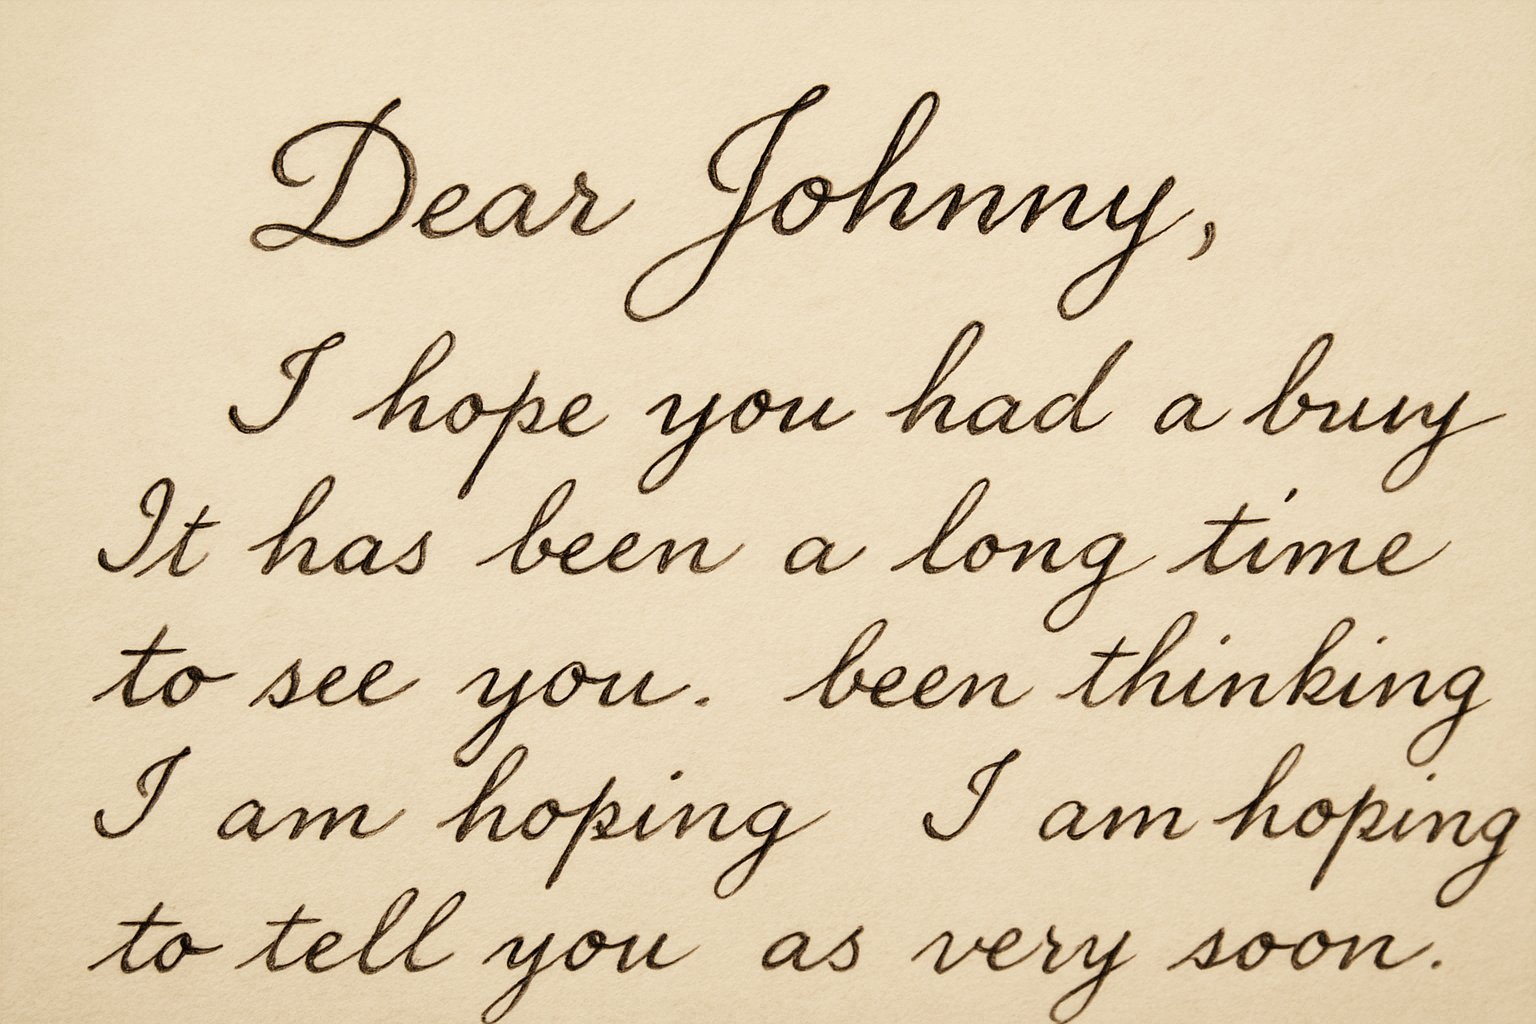 Dear Johnny,
I hope you had a
It has been a long time
to see you. been thinking
I am hoping I am hoping
to tell you as very soon.